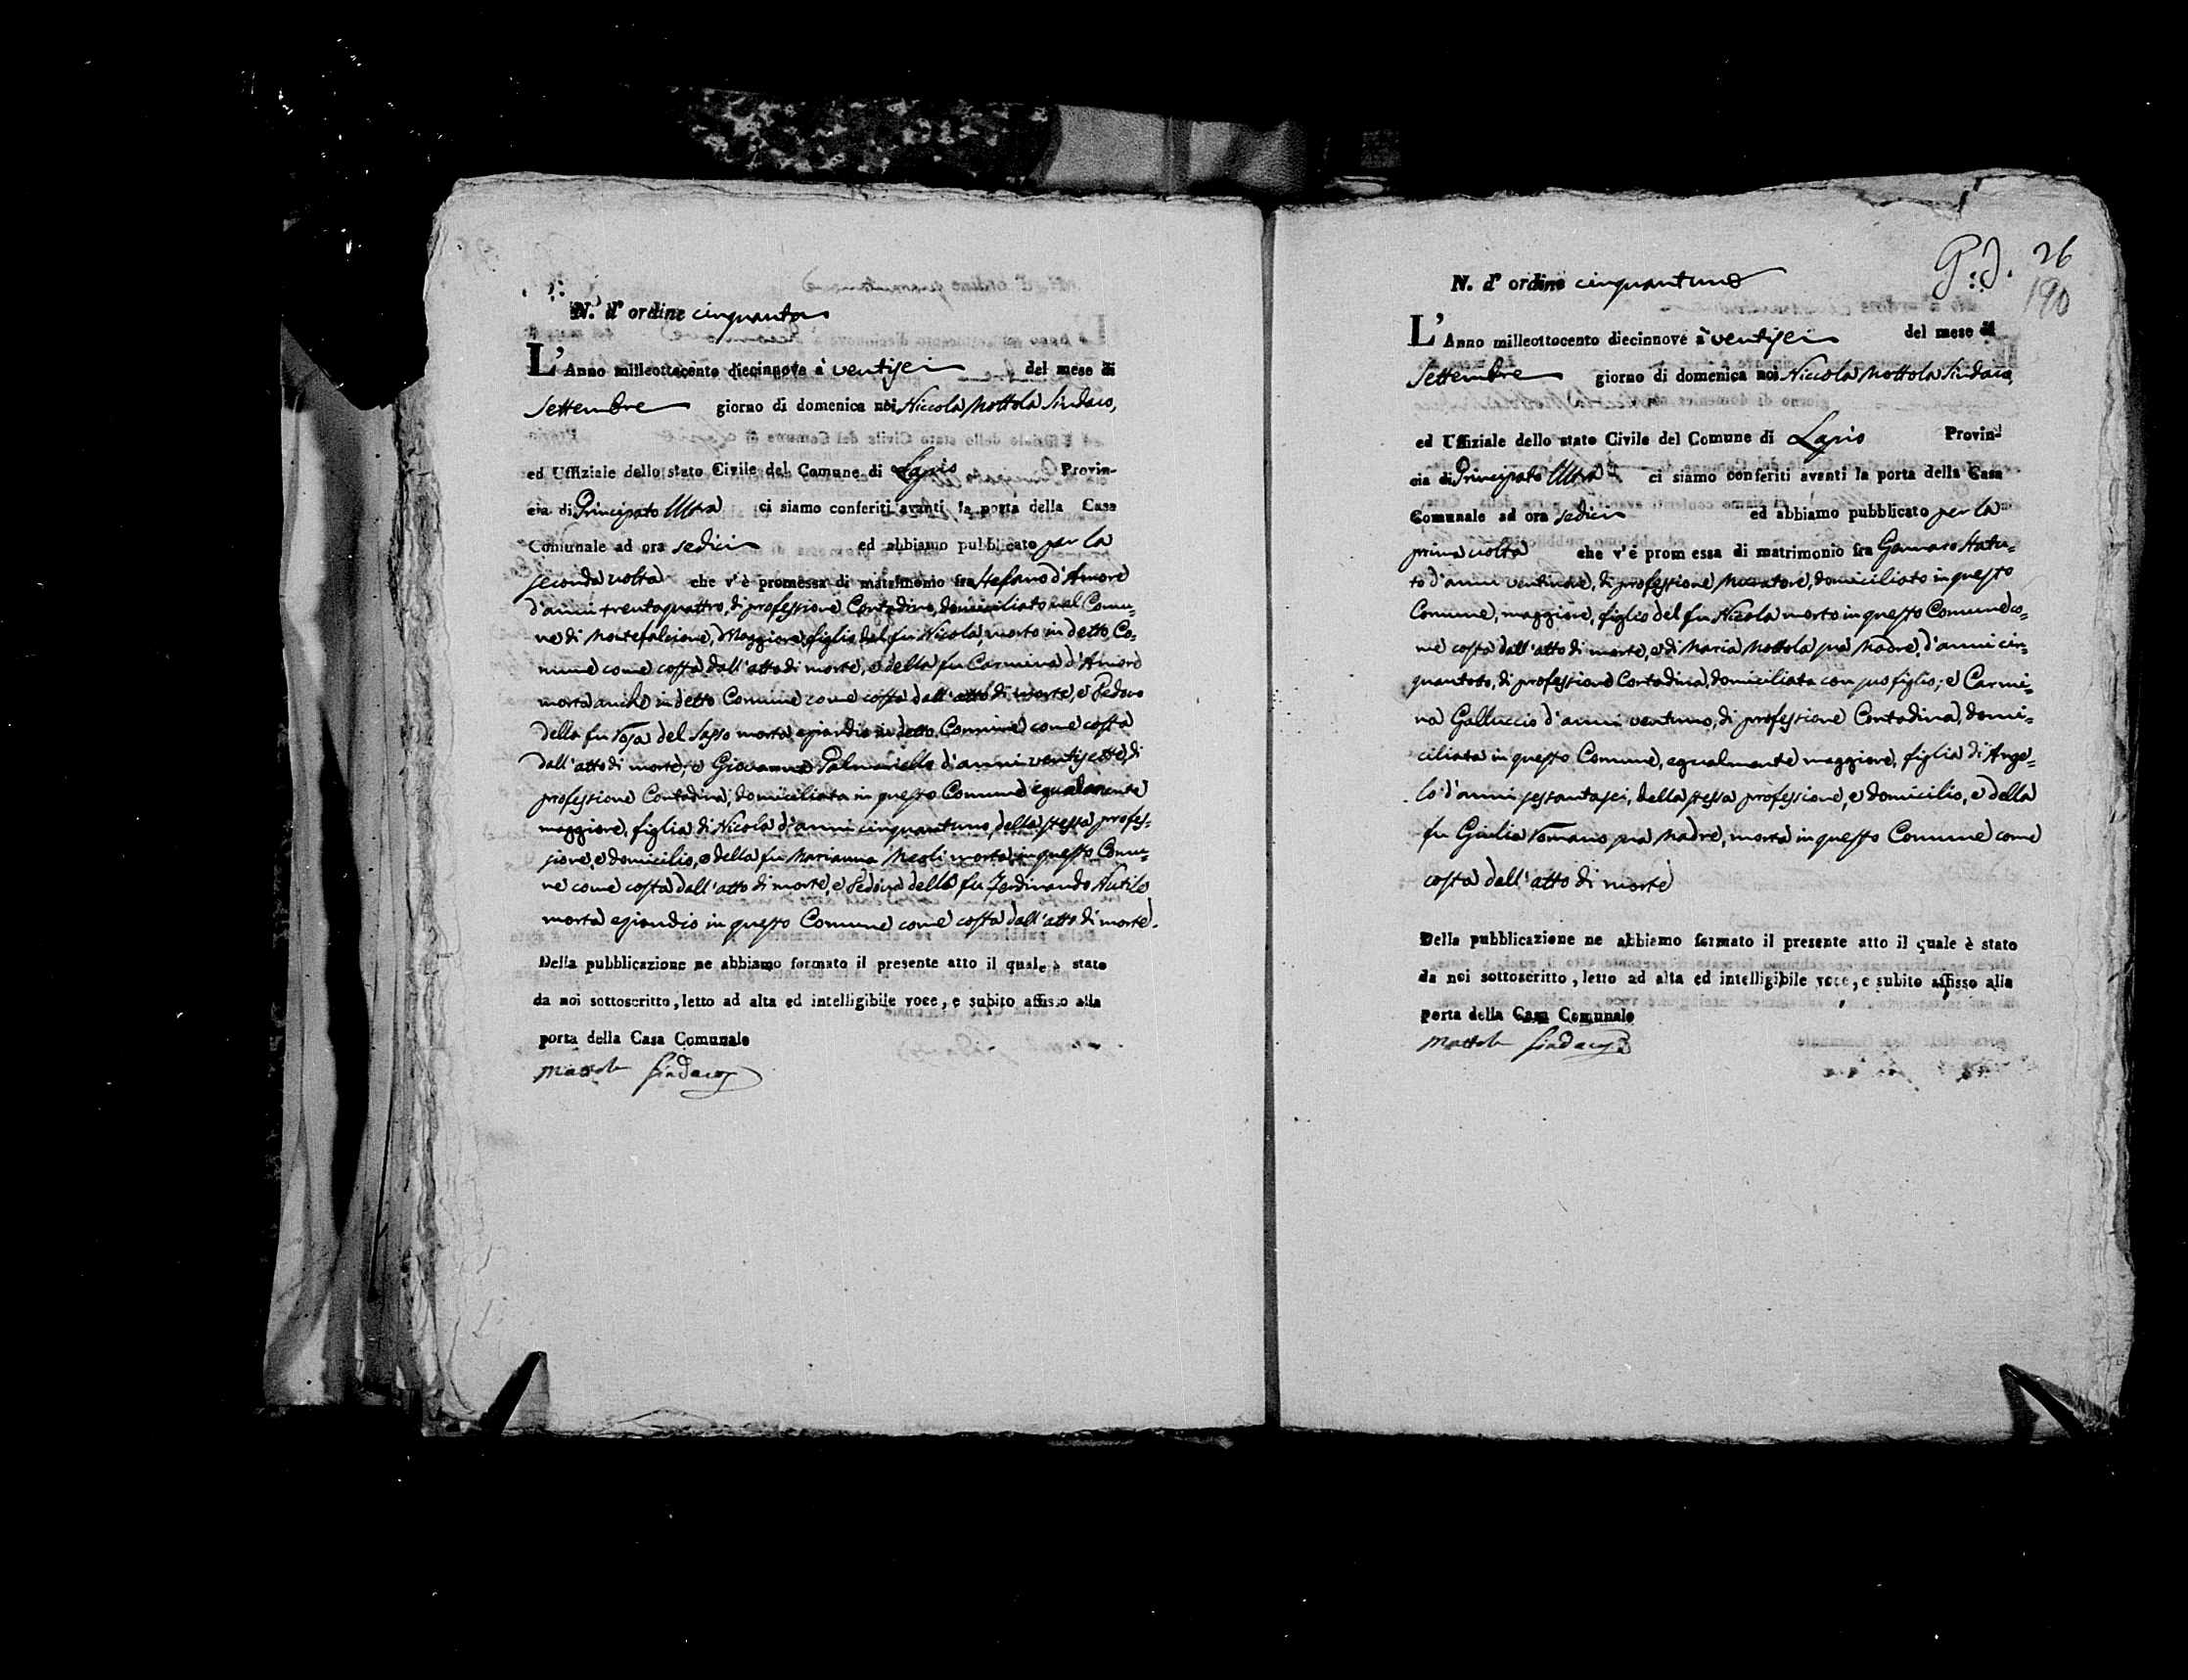 N.º d' ordine cinquanta
L' Anno milleottocento diecinnove à ventisei del mese di
Settembre giorno di domenica noi Niccola Mottola Sindaco,
ed Uffiziale dello stato Civile del Comune di Lapio Provin-
cia di Principato Ultra ci siamo conferiti avanti la porta della Casa
Comunale ad ora sedici ed abbiamo pubblicato per la
seconda volta che v'è promessa di matrimonio fra Stefano d'Amore
d'anni trentaquattro, di professione Contadino, domiciliato nel Comu=
ne di Montefalcione, Maggiore, figlio del fu Nicola, morto in detto Co=
mune come costa dall'atto di morte, e della fu Carmina d'Amore
morta anche in detto Comune come costa dall'atto di morte, e Vedovo
della fu Rosa del Sapio morta eziandio in detto Comune come costa
dall'atto di morte; e Giovanna Palmariello d'anni ventisette, di
professione Contadina, domiciliata in questo Comune egualmente
maggiore, figlia di Nicola d'anni cinquantuno, della stessa profes=
sione, e domicilio, e della fu Marianna Meoli morta in questo Comu=
ne come costa dall'atto di morte, e Vedova della fu Ferdinando
morta eziandio in questo Comune come costa dall'atto di morte.
Della pubblicazione ne abbiamo formato il presente atto il quale è stato
da noi sottoscritto, letto ad alta ed intelligibile voce, e subito affisso alla
porta della Casa Comunale
Mottola Sindaco
26
190
N. d' ordine cinquantuno
L' Anno milleottocento diecinnove à ventisei del mese di
Settembre giorno di domenica noi Niccola Mottola Sindaco,
ed Uffiziale dello stato Civile del Comune di Lapio Provin-
cia di Principato Ultra ci siamo conferiti avanti la porta della Casa
Comunale ad ora sedici ed abbiamo pubblicato per la
prima volta che v'è promessa di matrimonio fra Gennaro Statu=
to d'anni ventinove, di professione Muratore, domiciliato in questo
Comune, maggiore, figlio del fu Nicola morto in questo Comune co=
me costa dall'atto di morte, e di Maria Mottola sua Madre, d'anni cin=
quantotto, di professione Contadina, domiciliata con suo figlio; e Carmi=
na Galluccio d'anni ventuno, di professione Contadina, domi=
ciliata in questo Comune, egualmente maggiore, figlia di Ange=
lo d'anni sessantasei, della stessa professione, e domicilio, e della
fu Giulia Romano sua Madre, morta in questo Comune come
costa dall'atto di morte
Della pubblicazione ne abbiamo formato il presente atto il quale è stato
da noi sottoscritto, letto ad alta ed intelligibile voce, e subito affisso alla
porta della Casa Comunale
Mottola Sindaco